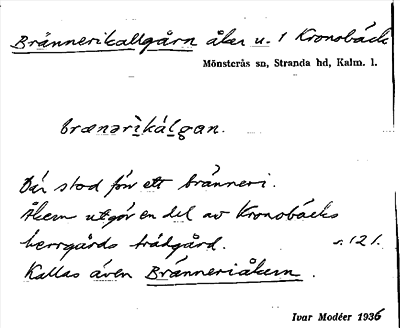 Brännerikallgårn åker u. 1 Kronobäck
Mönsterås sn, Stranda hd, Kalm. l.
brænərikálgan.
Där stod förr ett bränneri.
Åkern utgör en del av Kronobäcks
herrgårds trädgård. s. 121.
Kallas även Bränneriåkern.
Ivar Modéer 1936